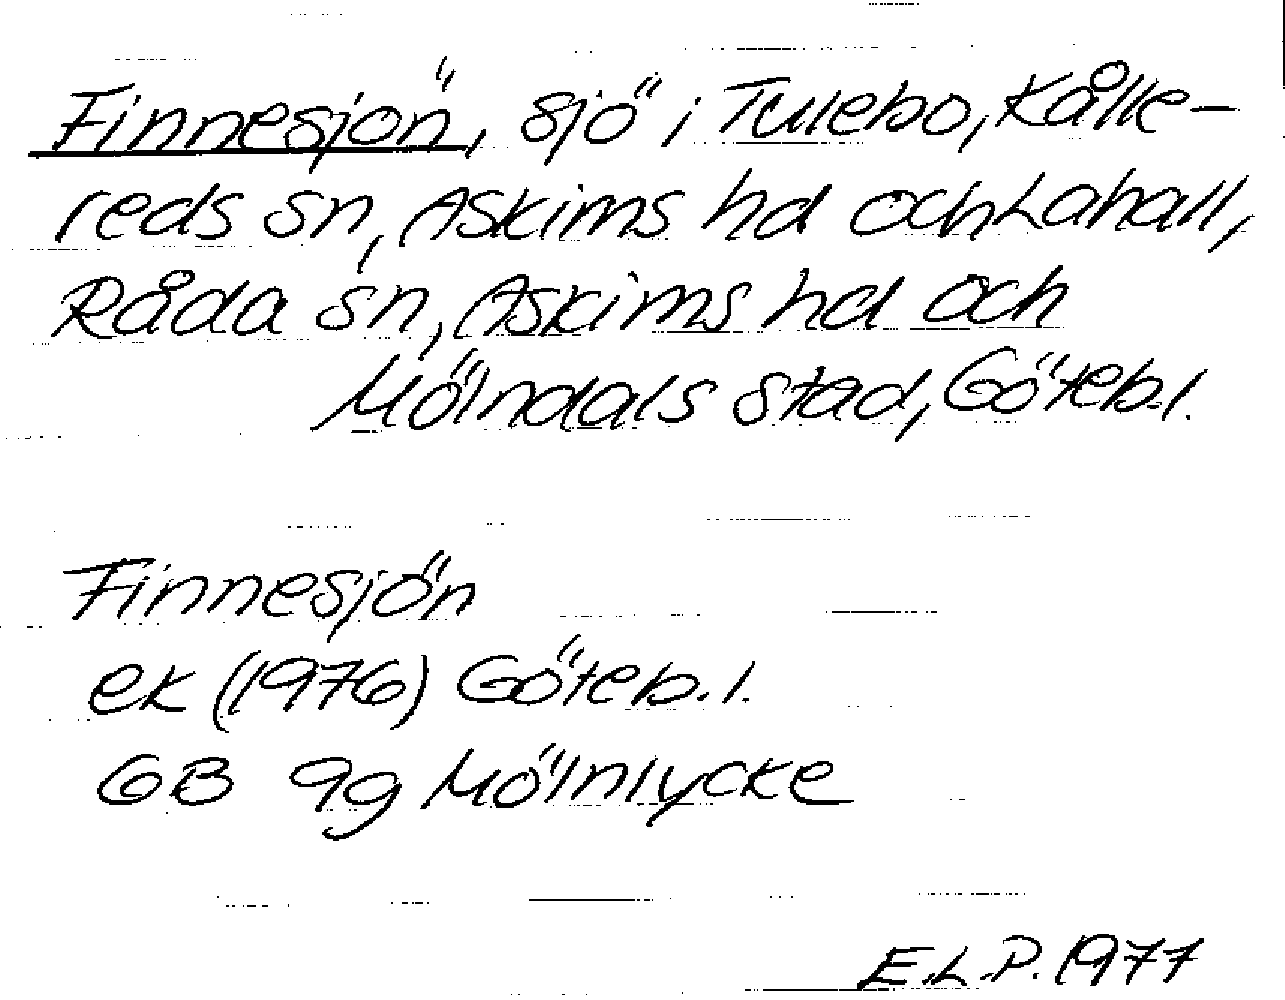 Finnesjön, sjö i Tulebo, Kålle-
reds sn, Askims hd och Lahall,
Råda sn, Askims hd och
Mölndals stad, Göteb.l.
Finnesjön
ek (1976) Göteb.l.
GB 9g Mölnlycke
E.L.P. 1977